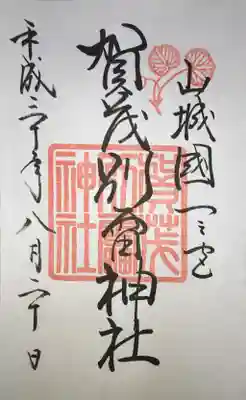 山城國一之宮
賀茂別雷神社
平成三十年八月二十日
賀茂別雷神社